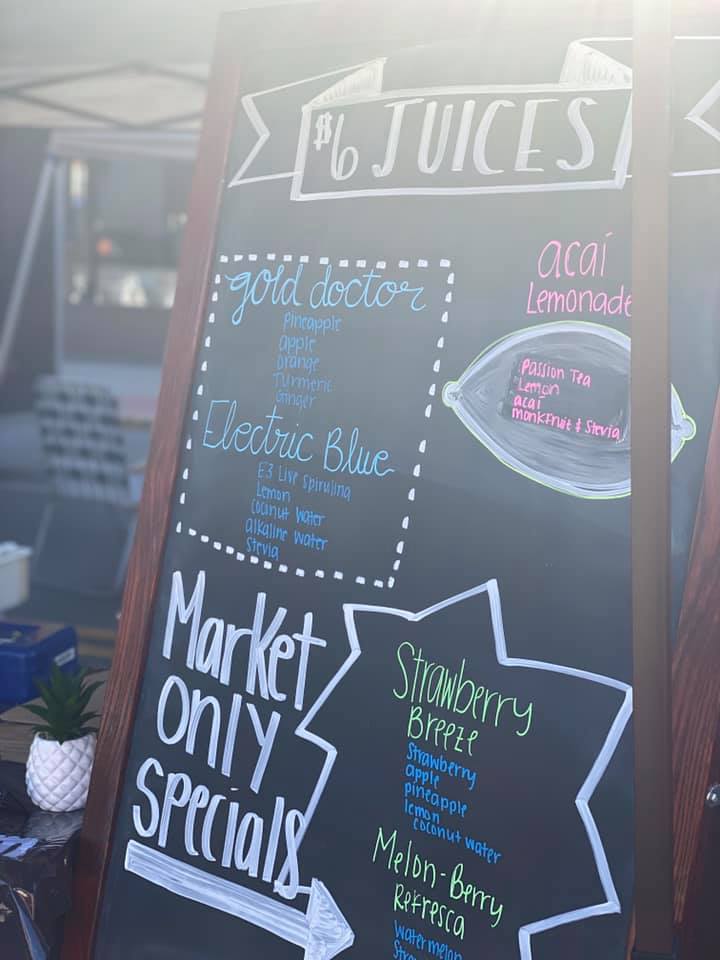 $6 JUICES
gold doctor
Pineapple
apple
orange
Turmeric
Ginger
Electric Blue
E3 Live Spirulina
Lemon
coconut water
alkaline water
Stevia
acaí
Lemonade
Passion Tea
Lemon
acaí
monkfruit & Stevia
Market
only
specials
Strawberry
Breeze
Strawberry
apple
pineapple
lemon
coconut water
Melon-Berry
Refresca
Watermelon